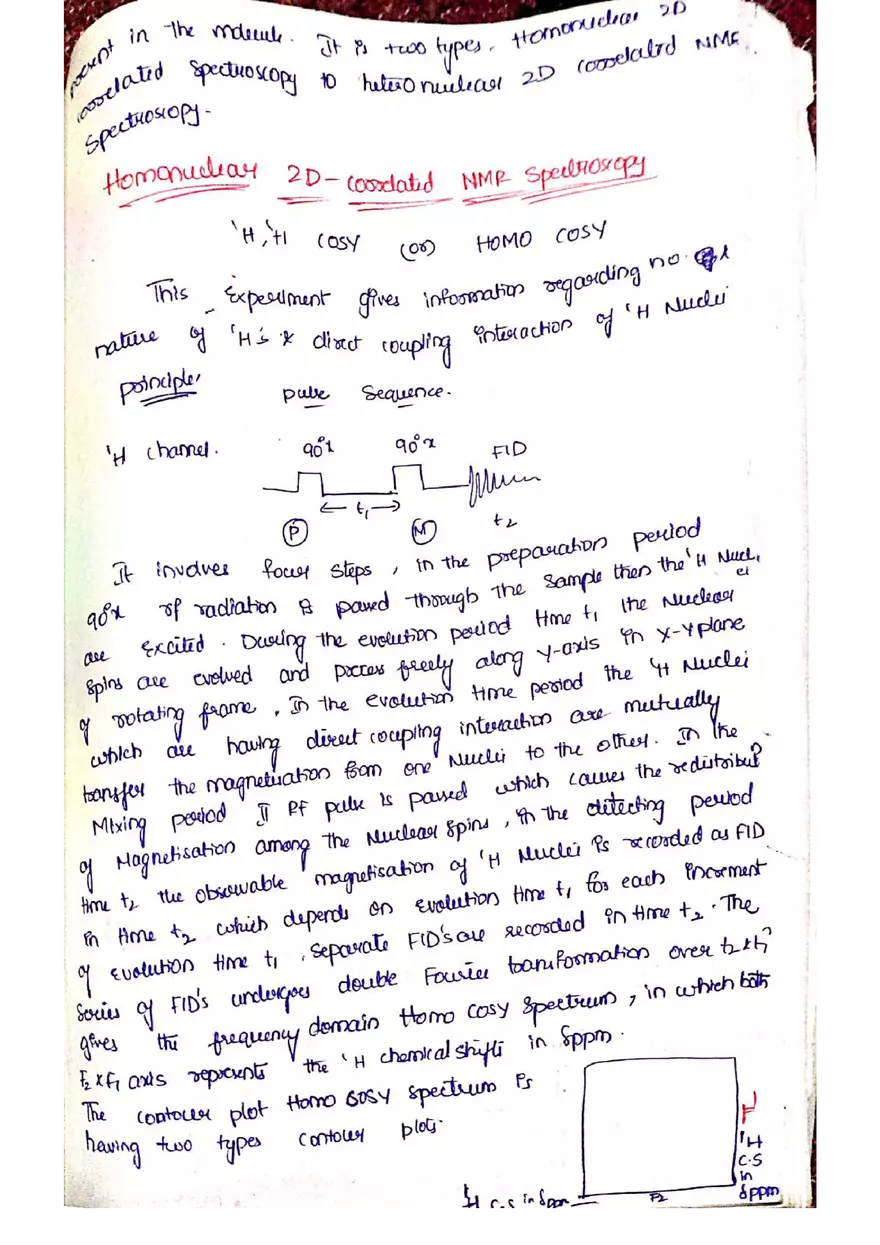 present in the molecule. It is two types. Homonuclear 2D
correlated Spectroscopy to heteronuclear 2D correlated NMR
Spectroscopy.
Homonuclear 2D-correlated NMR Spectroscopy
'H,'H COSY (or) HOMO COSY
This Experiment gives information regarding no. &
nature of 'H's & direct coupling interaction of 'H Nuclei
principle,
pulse Sequence.
'H channel. 90°x 90°x FID
← t₁ →
P M t₂
It involves four steps, in the preparation period
90°x rf radiation is passed through the sample then the 'H Nuclei
are Excited. During the evolution period time t₁ the Nuclear
Spins are evolved and precess freely along y-axis in x-y plane
of rotating frame, In the evolution time period the 'H Nuclei
which are having direct coupling interaction are mutually
transfer the magnetisation from one Nuclei to the other. In the
Mixing period II Rf pulse is passed which causes the redistribut
of Magnetisation among the Nuclear Spins, in the detecting period
time t₂ the observable magnetisation of 'H Nuclei is recorded as FID
in time t₂ which depends on evolution time t₁ for each increment
of evolution time t₁, separate FID's are recorded in time t₂. The
Series of FID's undergoes double Fourier transformation over t₂ & t₁
gives the frequency domain Homo cosy Spectrum, in which both
F₂ & F₁ axis represents the 'H chemical shifts in δppm.
The contour plot Homo cosy spectrum is
having two types contour plots.
F₁
'H
C.S
in
δppm
'H C.S in δppm F₂